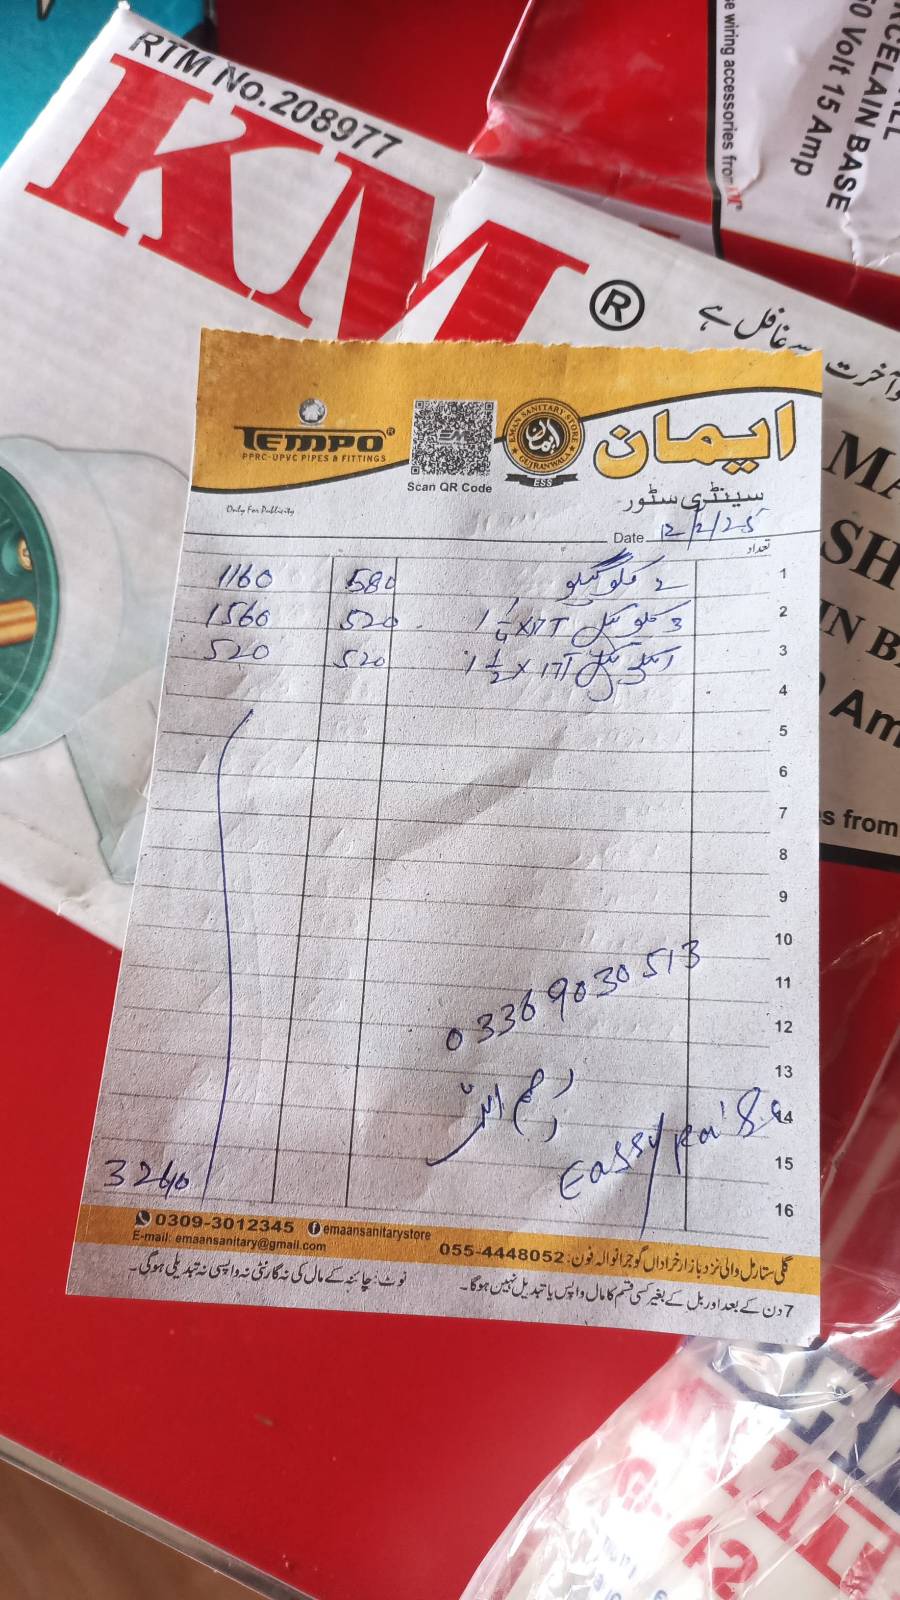 RTM No.208977
KM®
سے غافل ہے
آخرت
e wiring accessories from
50 Volt 15 Amp
RCELAIN BASE
MA
SH
IN B
Am
s from
TEMPO®
PPRC-UPVC PIPES & FITTINGS
Only For Publicity
Scan QR Code
EMAN SANITARY STORE
ایمان
GUJRANWALA
ESS
ایمان
سینٹری سٹور
Date 12/2/25
تعداد
1 2 کلو 580 1160
2 3 کلو کیل 1 1/4 x 17T 520 1560
3 کیل 1 1/2 x 17T 520 520
4
5
6
7
8
9
10
11 03369030513
12
13
14 Eassy paisa
15
16
3260
0309-3012345 emaansanitarystore
E-mail: emaansanitary@gmail.com
گلی ستارمل والی نزد بازار خراداں گوجرانوالہ فون: 055-4448052
نوٹ: چائنہ کے مال کی نہ گارنٹی نہ واپسی نہ تبدیلی ہوگی۔
7 دن کے بعد اور بل کے بغیر کسی قسم کا مال واپس یا تبدیل نہیں ہوگا۔
42